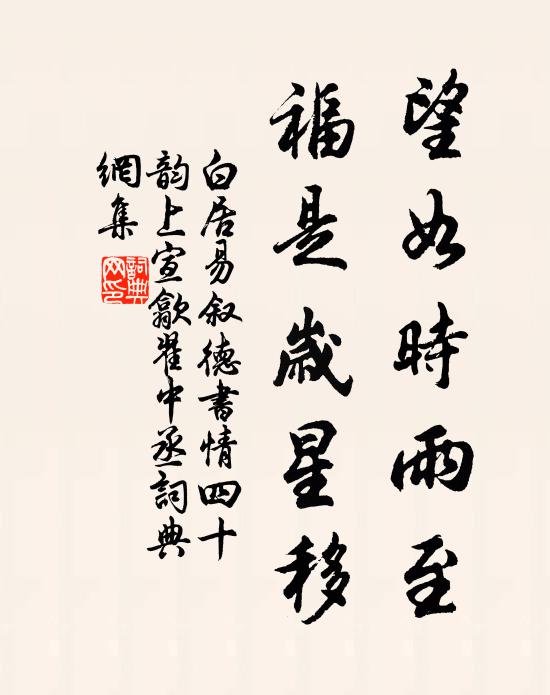 望如時雨至
福是歲星移
白居易敘德書情四十
韵上宣歙翟中丞詞典
網集
詞典網印